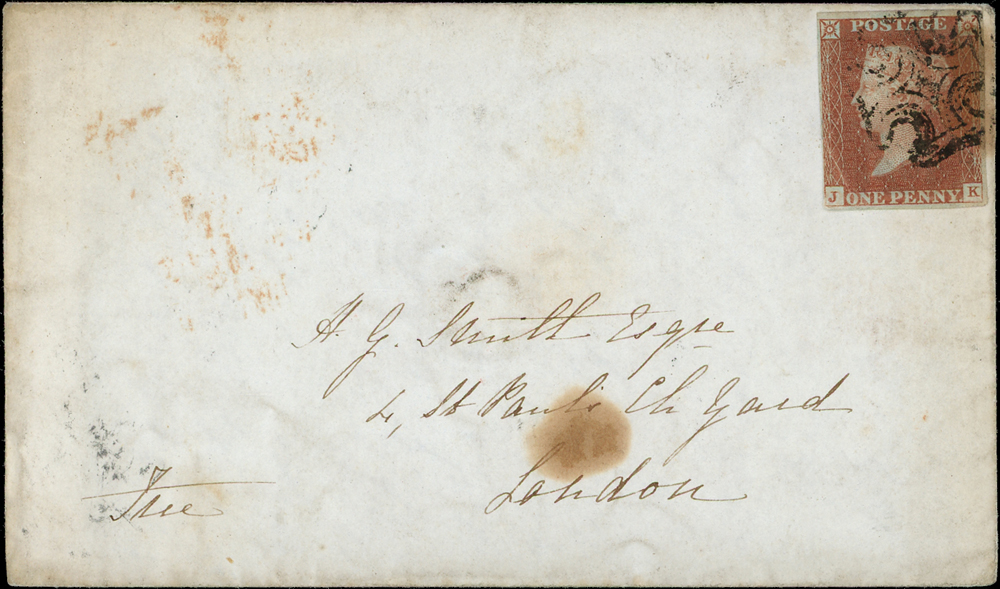 POSTAGE
J ONE PENNY K
H. G. Smith Esqre
4, St Paul's Ch Yard
London